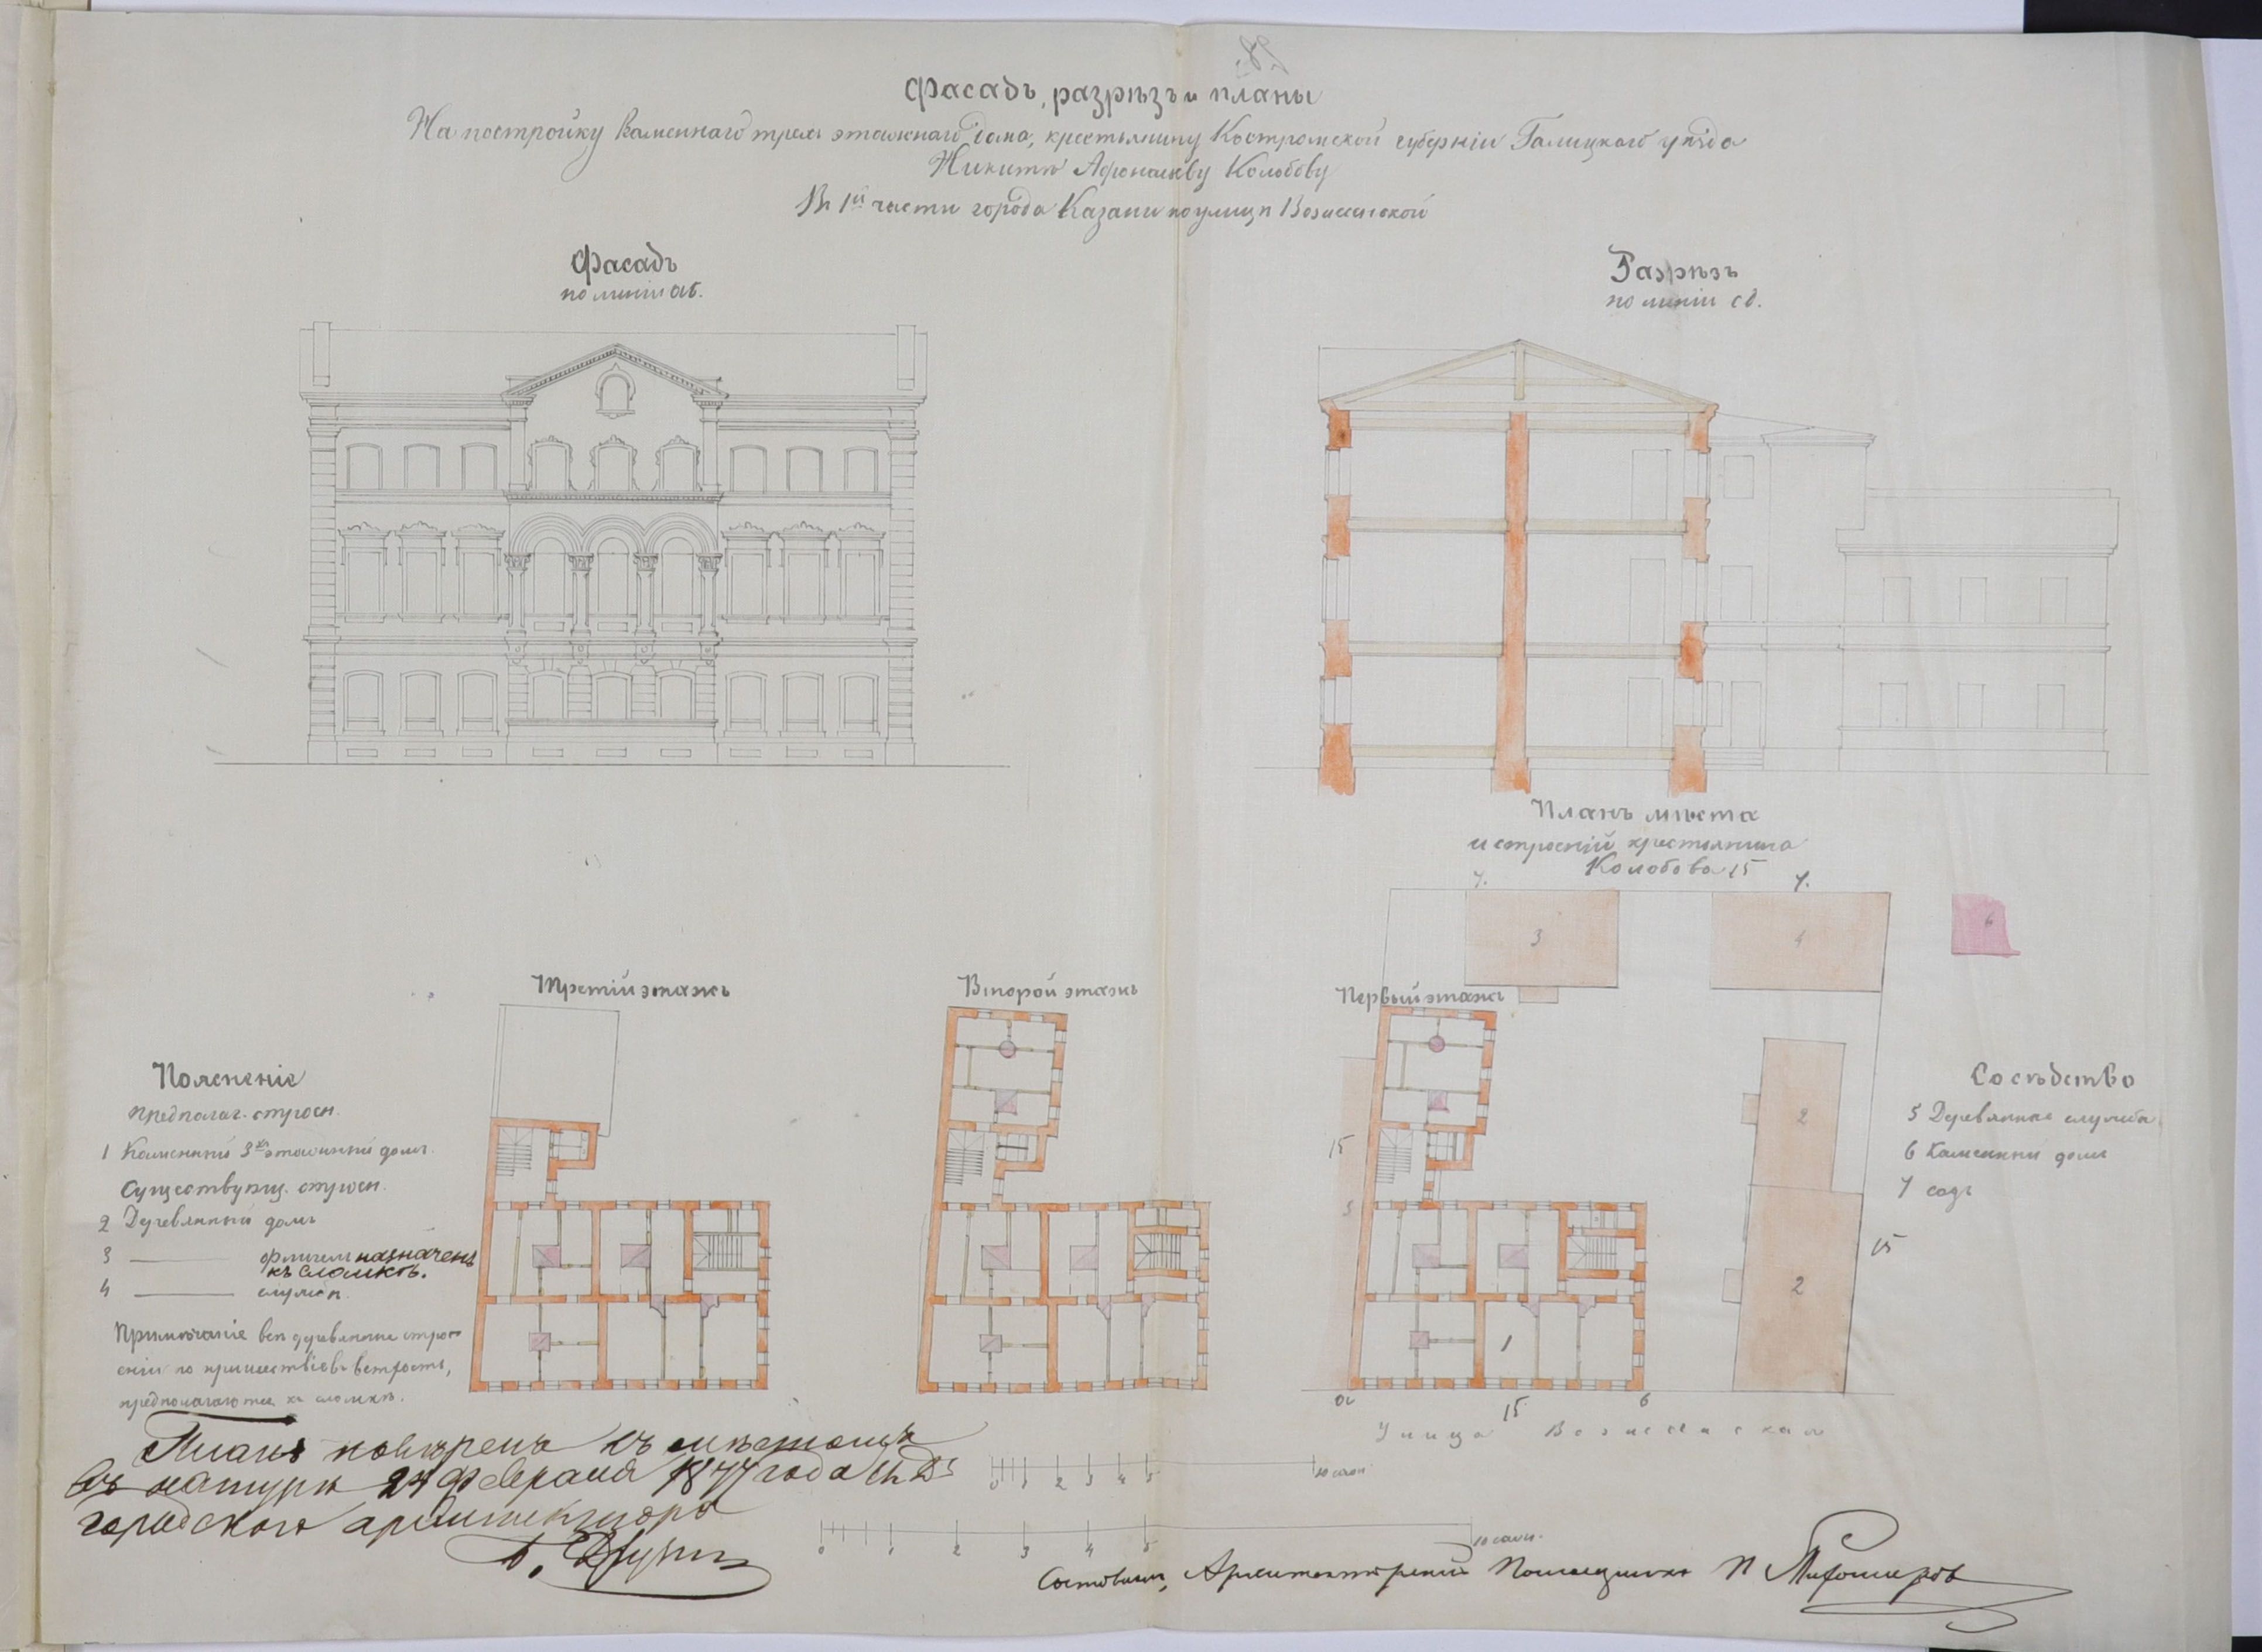 Фасадъ, разрѣзъ и планы
На постройку каменнаго трехъ этажнаго дома, крестьянину Костромской губерніи Галицкаго уѣзда
Никитѣ Афонасьеву Колобову
Въ 1й части города Казани по улицѣ Вознесенской
Фасадъ
по линіи аб.
Разрѣзъ
по линіи сд.
Планъ мѣста
и строеній крестьянина
Колобова 15
7. 7.
3 4 6
Третій этажъ
Второй этажъ
Первый этажъ
Поясненіе
предполаг. строен.
1 Каменный 3хъ этажный домъ.
Существующ. строен.
2 Деревянный домъ
3 флигель назначенъ
къ сломкѣ.
4 службы
Примѣчаніе всѣ деревянные строе
нія по пришествіе въ ветхость,
предполагаются къ сломкѣ.
Сосѣдство
5 Деревянные службы
6 Каменный домъ
7 садъ
2
15
5
15
2
1
а 15 б
Улица Вознесенская
Планъ повѣренъ съ мѣстомъ
въ натурѣ 24 февраля 1877 года
городского архитектора
0 1 2 3 4 5 10 саж.
0 1 2 3 4 5 10 саж.
Составилъ, Архитекторскій Помощникъ П